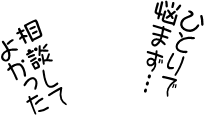 ひとりで
悩まず…
相談して
よかった